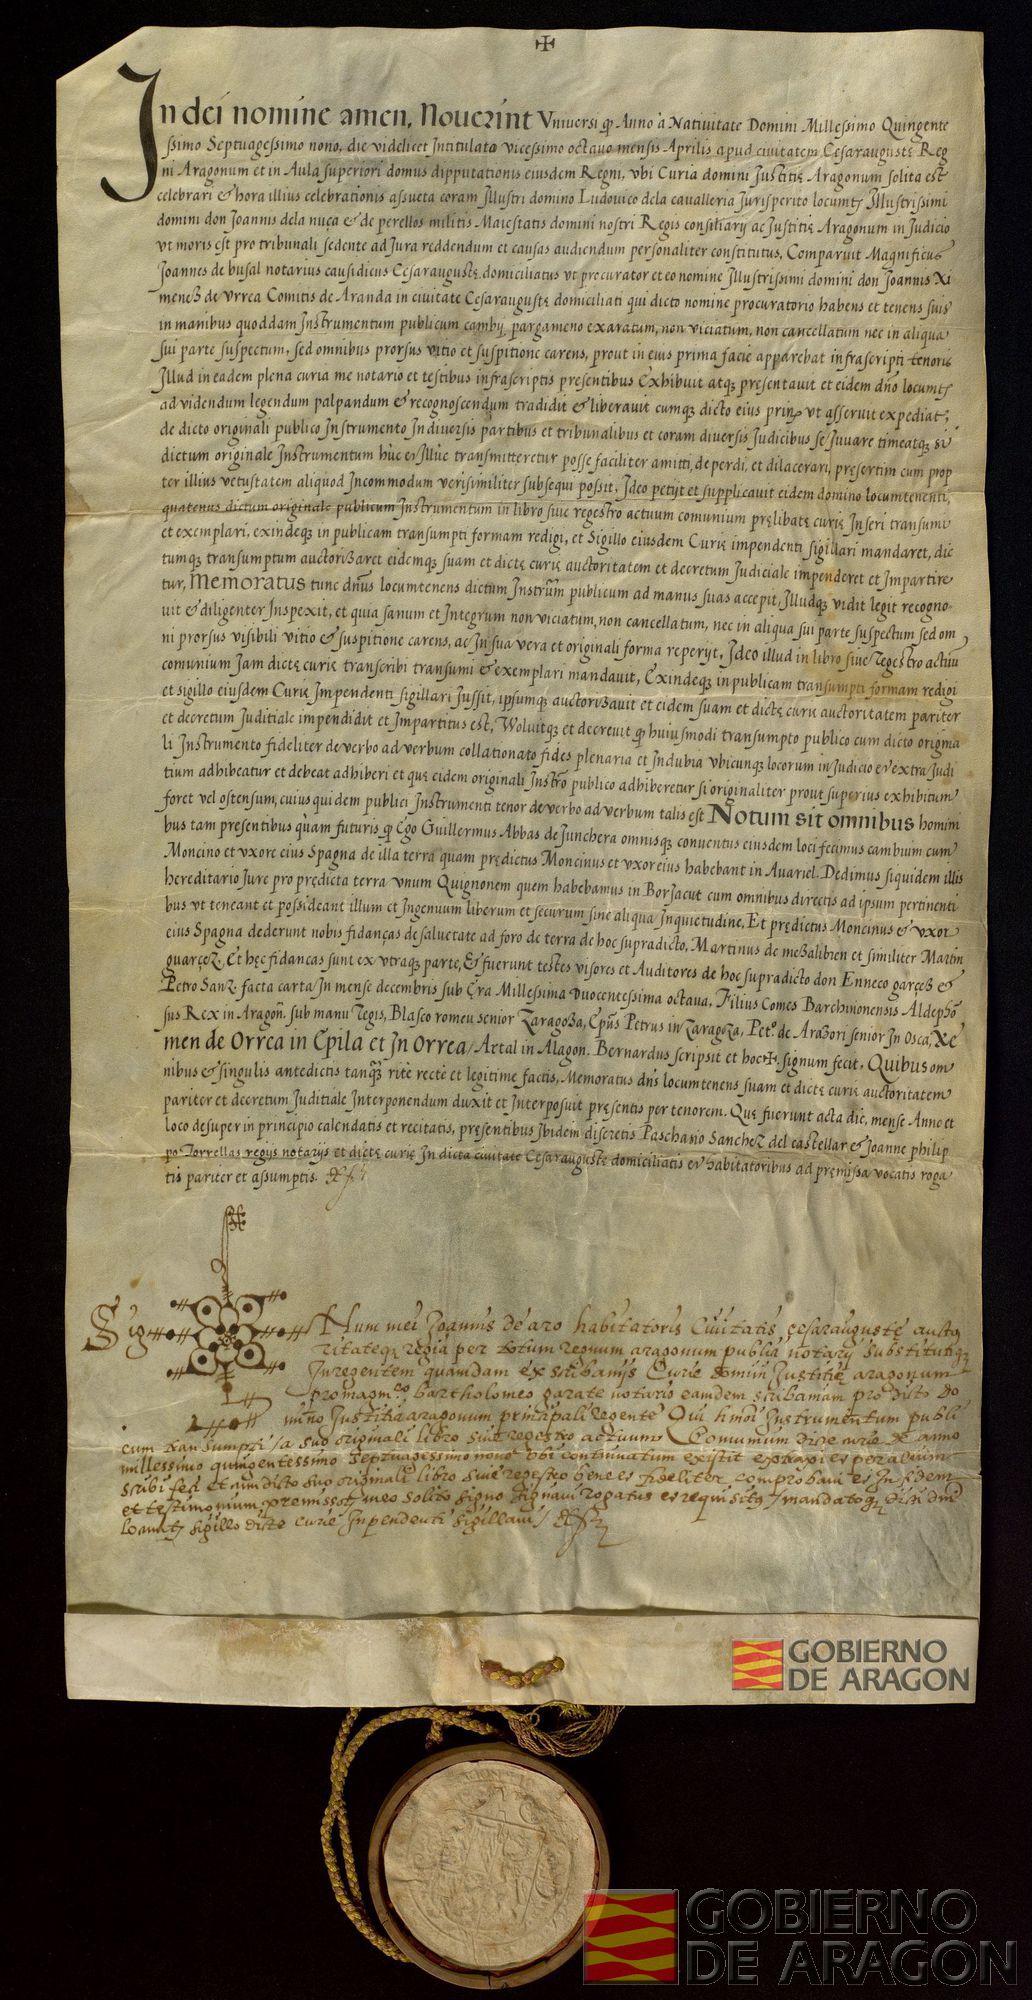 In dei nomine amen, Noverint Vniversi qp Anno à Nativitate Domini Millessimo Quingente
ssimo Septuagessimo nono, die videlicet Intitulata vicessimo octavo mensis Aprilis apud civitatem Cesaraugustę Reg
ni Aragonum et in Aula superiori domus dipputationis eiusdem Regni, vbi Curia domini Justitię Aragonum solita est
celebrari & hora illius celebrationis assueta coram Illustri domino Ludovico dela cavalleria Jurisperito locumts Illustrissimi
domini don Joannis dela nuça & de perellos militis Maiestatis domini nostri Regis consiliarij ac Justitię Aragonum in Judicio
vt moris est pro tribunali sedente ad Jura reddendum et causas audiendum personaliter constitutus, Comparuit Magnificus
Joannes de busal notarius causidicus Cesaraugustę domiciliatus vt procurator et eo nomine Illustrissimi domini don Joannis Xi
meneß de Vrrea Comitis de Aranda in civitate Cesaraugustę domiciliati qui dicto nomine procuratorio habens et tenens suis
in manibus quoddam Instrumentum publicum cambij pargameno exaratum, non viciatum, non cancellatum nec in aliqua
sui parte suspectum, sed omnibus prorsus vitio et suspitione carens, prout in eius prima facie apparebat infrascripti tenoris
Illud in eadem plena curia me notario et testibus infrascriptis presentibus Exhibuit atqz presentavit et eidem dño locumts
ad videndum legendum palpandum & recognoscendum tradidit & liberavit cumqz dicto eius prinp vt asseruit expediat,
de dicto originali publico Instrumento In diversis partibus et tribunalibus et coram diversis Judicibus se Juvare timeatqz si
dictum originale Instrumentum hùc et Illùc transmitteretur posse faciliter amitti, deperdi, et dilacerari, presertim cum prop
ter illius vetustatem aliquod Incommodum verisimiliter subsequi possit, Ideo petijt et supplicavit eidem domino locumtenenti,
quatenus dictum originale publicum Instrumentum in libro sive regestro actuum comunium prelibatę curię Inseri transumi
et exemplari, exindeqz in publicam transumpti formam redigi, et Sigillo eiusdem Curię impendenti sigillari mandaret, dic
tumqz transumptum auctorißaret eidemqz suam et dictę curię auctoritatem et decretum Judiciale impenderet et Impartire
tur, Memoratus tunc dñus locumtenens dictum Instrum̃ publicum ad manus suas accepit, Illudqz vidit legit recogno-
vit & diligenter Inspexit, et quia sanum et Integrum non viciatum, non cancellatum, nec in aliqua sui parte suspectum sed om
ni prorsus visibili vitio & suspitione carens, ac In sua vera et originali forma reperijt, Ideo illud in libro sive regestro actuũ
comunium Jam dictę curię transcribi transumi & exemplari mandavit, Exindeqz in publicam transumpti formam redigi
et sigillo eiusdem Curię Impendenti sigillari Jussit, ipsumqz auctorißavit et eidem suam et dictę curię auctoritatem pariter
et decretum Juditiale impendidit et Impartitus est, Woluitqz et decrevit qp huiusmodi transumpto publico cum dicto origina
li Instrumento fideliter de verbo ad verbum collationato fides plenaria et Indubia vbicunqz locorum in Judicio et extra Judi
tium adhibeatur et debeat adhiberi et que eidem originali Instrõ publico adhiberetur si originaliter prout superius exhibitum
foret vel ostensum, cuius quidem publici Instrumenti tenor de verbo ad verbum talis est Notum sit omnibus homini
bus tam presentibus quàm futuris qp Ego Guillermus Abbas de Junchera omnisqz conventus eiusdem loci fecimus cambium cum
Moncino et vxore eius Spagna de illa terra quam prędictus Moncinus et vxor eius habebant in Avariel. Dedimus siquidem illis
hereditario Jure pro prędicta terra vnum Quignonem quem habebamus in Borjacut cum omnibus directis ad ipsum pertinenti
bus vt teneant et possideant illum et Ingenuum liberum et securum sine aliqua Inquietudine, Et prędictus Moncinus & vxor
eius Spagna dederunt nobis fidanças de salvetate ad foro de terra de hoc supradicto, Martinus de meßalibren et similiter Martin
guarçez, Et hęc fidancas sunt ex vtraqz parte, & fuerunt testes visores et Auditores de hoc supradicto don Enneco garçeß &
Petro Sanz facta carta In mense decembris sub Ęra Millessima Duocentessima octava, Filius Comes Barchinonensis Aldephõ
sus Rex in Aragoñ. sub manu regis, Blasco romeu senior Zaragoßa, Ep̃us Petrus in Zaragoza, Pet.o de Araßori senior In Osca, Xe
men de Orrea in Epila et In Orrea, Artal in Alagon. Bernardus scripsit et hoc ✠ signum fecit, Quibus om
nibus & singulis antedictis tanqz ritè rectè et legitime factis, Memoratus dñs locumtenens suam et dictę curię auctoritatem
pariter et decretum Juditiale Interponendum duxit et Interposuit pręsentis per tenorem. Quę fuerunt acta die, mense Anno et
loco desuper in principio calendatis et recitatis, pręsentibus Ibidem discretis Paschasio Sanchez del castellar & Joanne philip
po Torrellas regijs notarijs et dictę curię In dicta civitate Cesaraugustę domiciliatis et habitatoribus ad premissa vocatis roga
tis pariter et assumptis.
Sig Num mei Joannis de aro habitatoris Civitatis çesaraugustę aucto
ritateqz regia per totum regnum aragonum publici notarij substitutiqz
In regentem quamdam ex scribanijs Curię domini Justitię aragonum
pro magco bartholomeo garate notario eamdem scribaniam pro dicto do
mino Justitia aragonum principali regente Qui hmõi Instrumentum publi
cum transumpti / a suo originali libro sive regestro actuum Comunium dicte curie de anno
millessimo quingentessimo septuagessimo nono vbi continuatum existit extraxi et per alium
scribi feci et cum dicto suo originali libro sive regestro bene et fideliter comprobavi et In fidem
et testimonium premissor meo solito signo signavi rogatus et requisitus / mandatoqz dicti dñi
locumts sigillo dicte curie Inpendenti sigillavi /
GOBIERNO
DE ARAGON
GOBIERNO
DE ARAGON